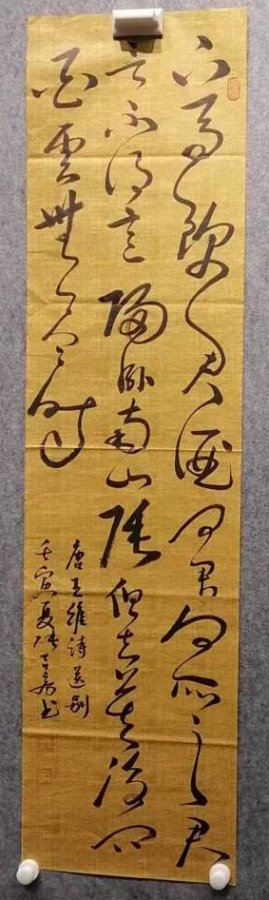 下馬飲君酒問君何所之君
言不得意歸臥南山陲但去莫復問
白雲無盡時
唐王維詩送別
壬寅夏書